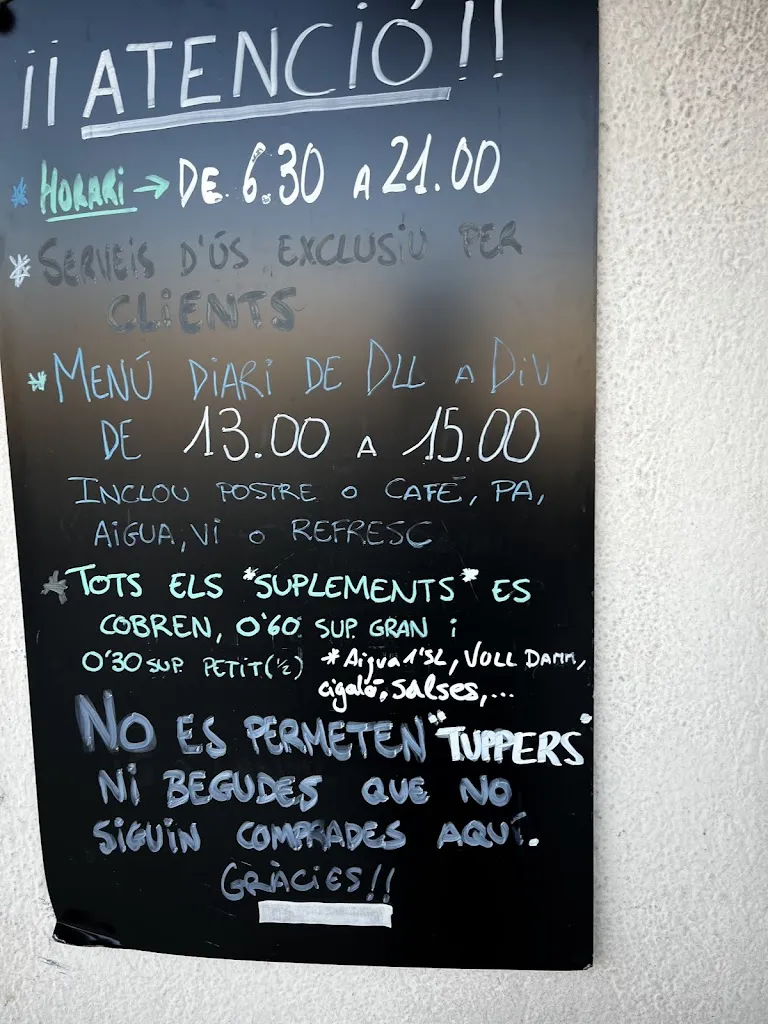 ¡¡ATENCIÓ!!
* HORARI → DE 6.30 A 21.00
* SERVEIS D'ÚS EXCLUSIU PER
CLIENTS
* MENÚ DIARI DE DLL A DIV
DE 13.00 A 15.00
INCLOU POSTRE O CAFÉ, PA,
AIGUA, VI O REFRESC
* TOTS ELS *SUPLEMENTS* ES
COBREN, 0'60 SUP. GRAN i
0'30 SUP. PETIT (½) * Aigua 1'5L, VOLL DAMM,
cigaló, salses,...
NO ES PERMETEN "TUPPERS"
NI BEGUDES QUE NO
SIGUIN COMPRADES AQUÍ.
GRÀCIES!!